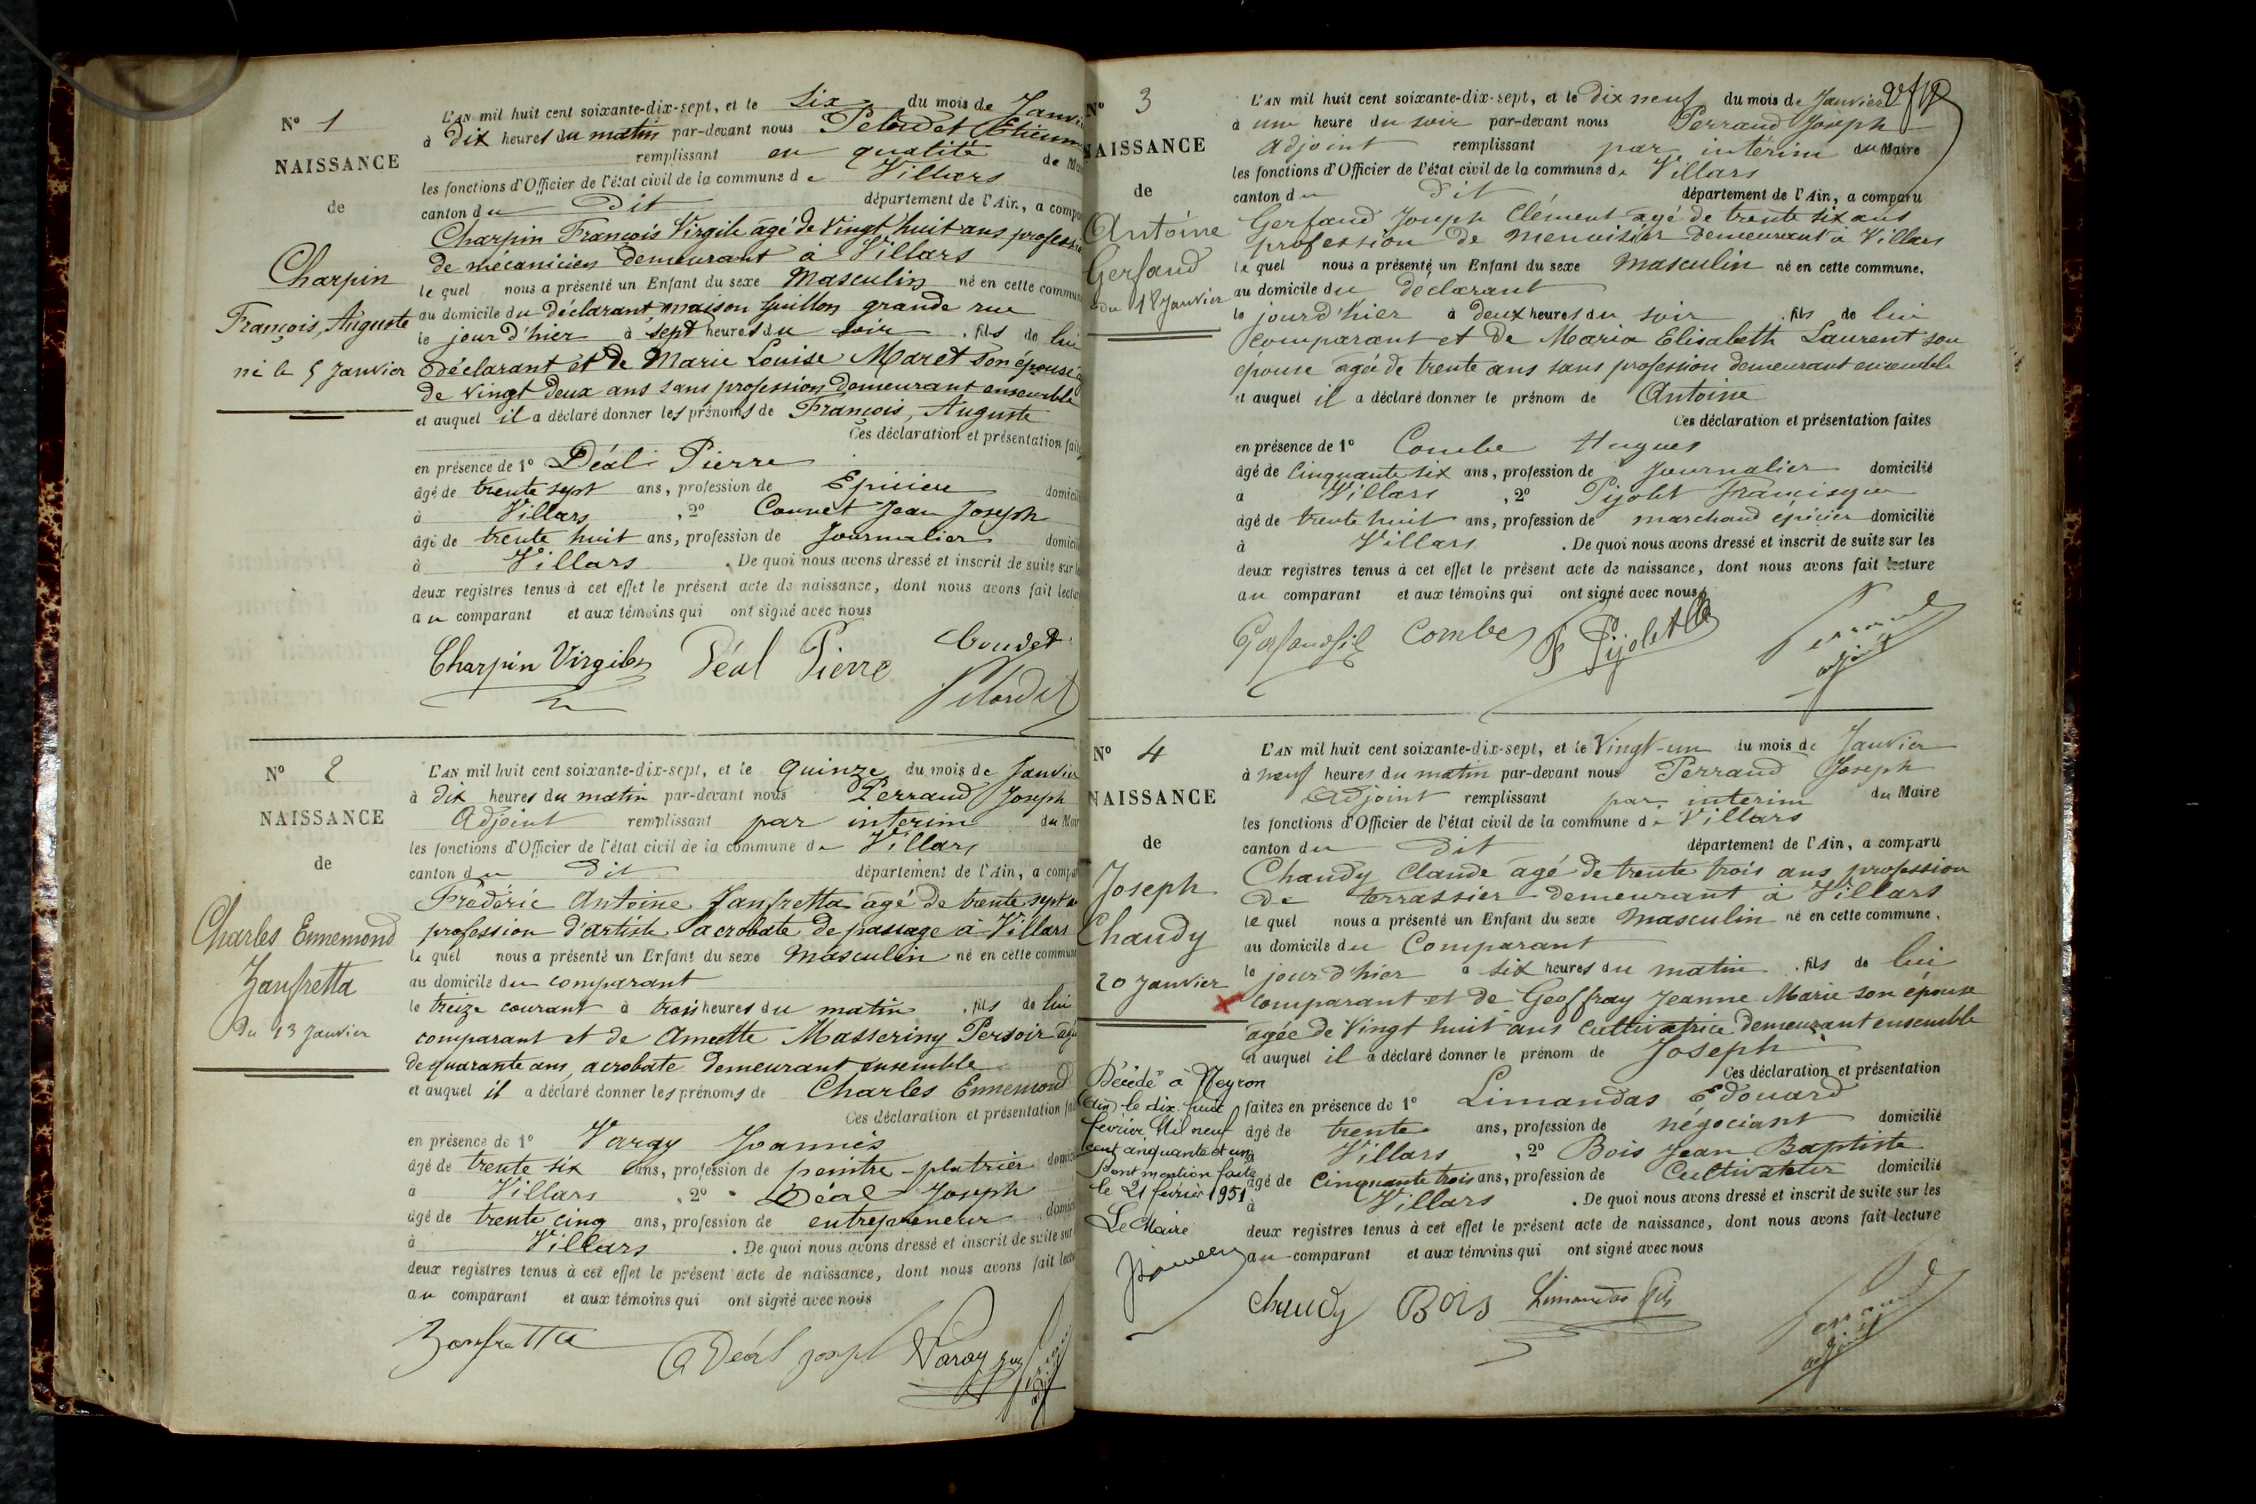 N° 1
NAISSANCE
de
Charpin
François, Auguste
né le 5 Janvier
L'AN mil huit cent soixante-dix-sept, et le Six du mois de Janvier
à Dix heures du matin par-devant nous Pelardet Etienne
remplissant en qualité de
les fonctions d'Officier de l'état civil de la commune de Villars
canton du Dit département de l'Ain, a
Charpin François Virgile âgé de Vingt huit ans
de mécanicien demeurant à Villars
le quel nous a présenté un Enfant du sexe Masculin né en cette commune
au domicile du déclarant maison Guillon grande rue
le jour d'hier à sept heures du soir . fils de lui
déclarant et de Marie Louise Maret son épouse
de vingt deux ans sans profession demeurant ensemble
et auquel il a déclaré donner les prénoms de François, Auguste
Ces déclaration et présentation
en présence de 1° Déal Pierre
âgé de trente sept ans, profession de Epicier
à Villars , 2° Jean Joseph
âgé de trente huit ans, profession de Journalier
à Villars . De quoi nous avons dressé et inscrit de suite sur
deux registres tenus à cet effet le présent acte de naissance, dont nous avons fait
au comparant et aux témoins qui ont signé avec nous
Charpin Virgile Déal Pierre
Pelardet
N° 2
NAISSANCE
de
Charles Ennemond
Zanfretta
Du 13 Janvier
L'AN mil huit cent soixante-dix-sept, et le quinze du mois de Janvier
à dix heures du matin par-devant nous Perraud Joseph
Adjoint remplissant par interim du
les fonctions d'Officier de l'état civil de la commune de Villars
canton du Dit département de l'Ain, a
Frédéric Antoine Zanfretta âgé de trente sept
profession d'artiste acrobate de passage à Villars
le quel nous a présenté un Enfant du sexe Masculin né en cette commune
au domicile du comparant
le treize courant à trois heures du matin . fils de lui
comparant et de Masseriny Persoir
de quarante ans, acrobate demeurant ensemble
et auquel il a déclaré donner les prénoms de Charles Ennemond
Ces déclaration et présentation
en présence de 1° Varay Joannès
âgé de trente six ans, profession de peintre-platrier
à Villars , 2° Déal Joseph
âgé de trente cinq ans, profession de entrepreneur
à Villars . De quoi nous avons dressé et inscrit de suite sur
deux registres tenus à cet effet le présent acte de naissance, dont nous avons fait
au comparant et aux témoins qui ont signé avec nous
Zanfretta Déal Joseph Varay
N° 3
NAISSANCE
de
Antoine
Gerfaud
du 18 Janvier
L'AN mil huit cent soixante-dix-sept, et le Dix neuf du mois de Janvier
à une heure du soir par-devant nous Perraud Joseph
Adjoint remplissant par intérim du Maire
les fonctions d'Officier de l'état civil de la commune de Villars
canton du Dit département de l'Ain, a comparu
Gerfaud Joseph Clément agé de trente six ans
profession de menuisier demeurant à Villars
le quel nous a présenté un Enfant du sexe Masculin né en cette commune,
au domicile du déclarant
le jour d'hier à deux heures du soir . fils de lui
comparant et de Maria Elisabeth Laurent son
épouse agée de trente ans sans profession demeurant ensemble
et auquel il a déclaré donner le prénom de Antoine
Ces déclaration et présentation faites
en présence de 1° Combe Hugues
âgé de Cinquante six ans, profession de Journalier domicilié
à Villars , 2° Pijolet Francisque
âgé de trente huit ans, profession de marchand épicier domicilié
à Villars . De quoi nous avons dressé et inscrit de suite sur les
deux registres tenus à cet effet le présent acte de naissance, dont nous avons fait lecture
au comparant et aux témoins qui ont signé avec nous
Gerfaud fils Combe F Pijolet Perraud
adjoint
N° 4
NAISSANCE
de
Joseph
Chaudy
20 Janvier
L'AN mil huit cent soixante-dix-sept, et le Vingt-un du mois de Janvier
à neuf heures du matin par-devant nous Perraud Joseph
Adjoint remplissant par interim du Maire
les fonctions d'Officier de l'état civil de la commune de Villars
canton du Dit département de l'Ain, a comparu
Chaudy Claude âgé de trente trois ans profession
de terrassier demeurant à Villars
le quel nous a présenté un Enfant du sexe Masculin né en cette commune,
au domicile du Comparant
le jour d'hier à six heures du matin . fils de lui
comparant et de Geoffray Jeanne Marie son épouse
agée de Vingt huit ans cultivatrice demeurant ensemble
et auquel il a déclaré donner le prénom de Joseph
Ces déclaration et présentation
faites en présence de 1° Limandas Edouard
âgé de trente ans, profession de négociant domicilié
à Villars , 2° Bois Jean Baptiste
âgé de Cinquante trois ans, profession de Cultivateur domicilié
à Villars . De quoi nous avons dressé et inscrit de suite sur les
deux registres tenus à cet effet le présent acte de naissance, dont nous avons fait lecture
au comparant et aux témoins qui ont signé avec nous
Décédé à Neyron
(Ain) le dix huit
février Mil neuf
cent cinquante et un
Dont mention faite
le 21 février 1951
Le Maire
Chaudy Bois Limandas fils Perraud
adjoint